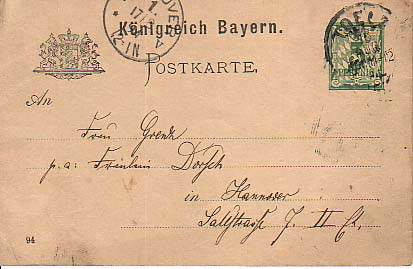 Königreich Bayern.
POSTKARTE.
An
Frau Grenk
p. a: Fräulein Dorsch
in Hannover
Sallstrasse 7. II Et.
94